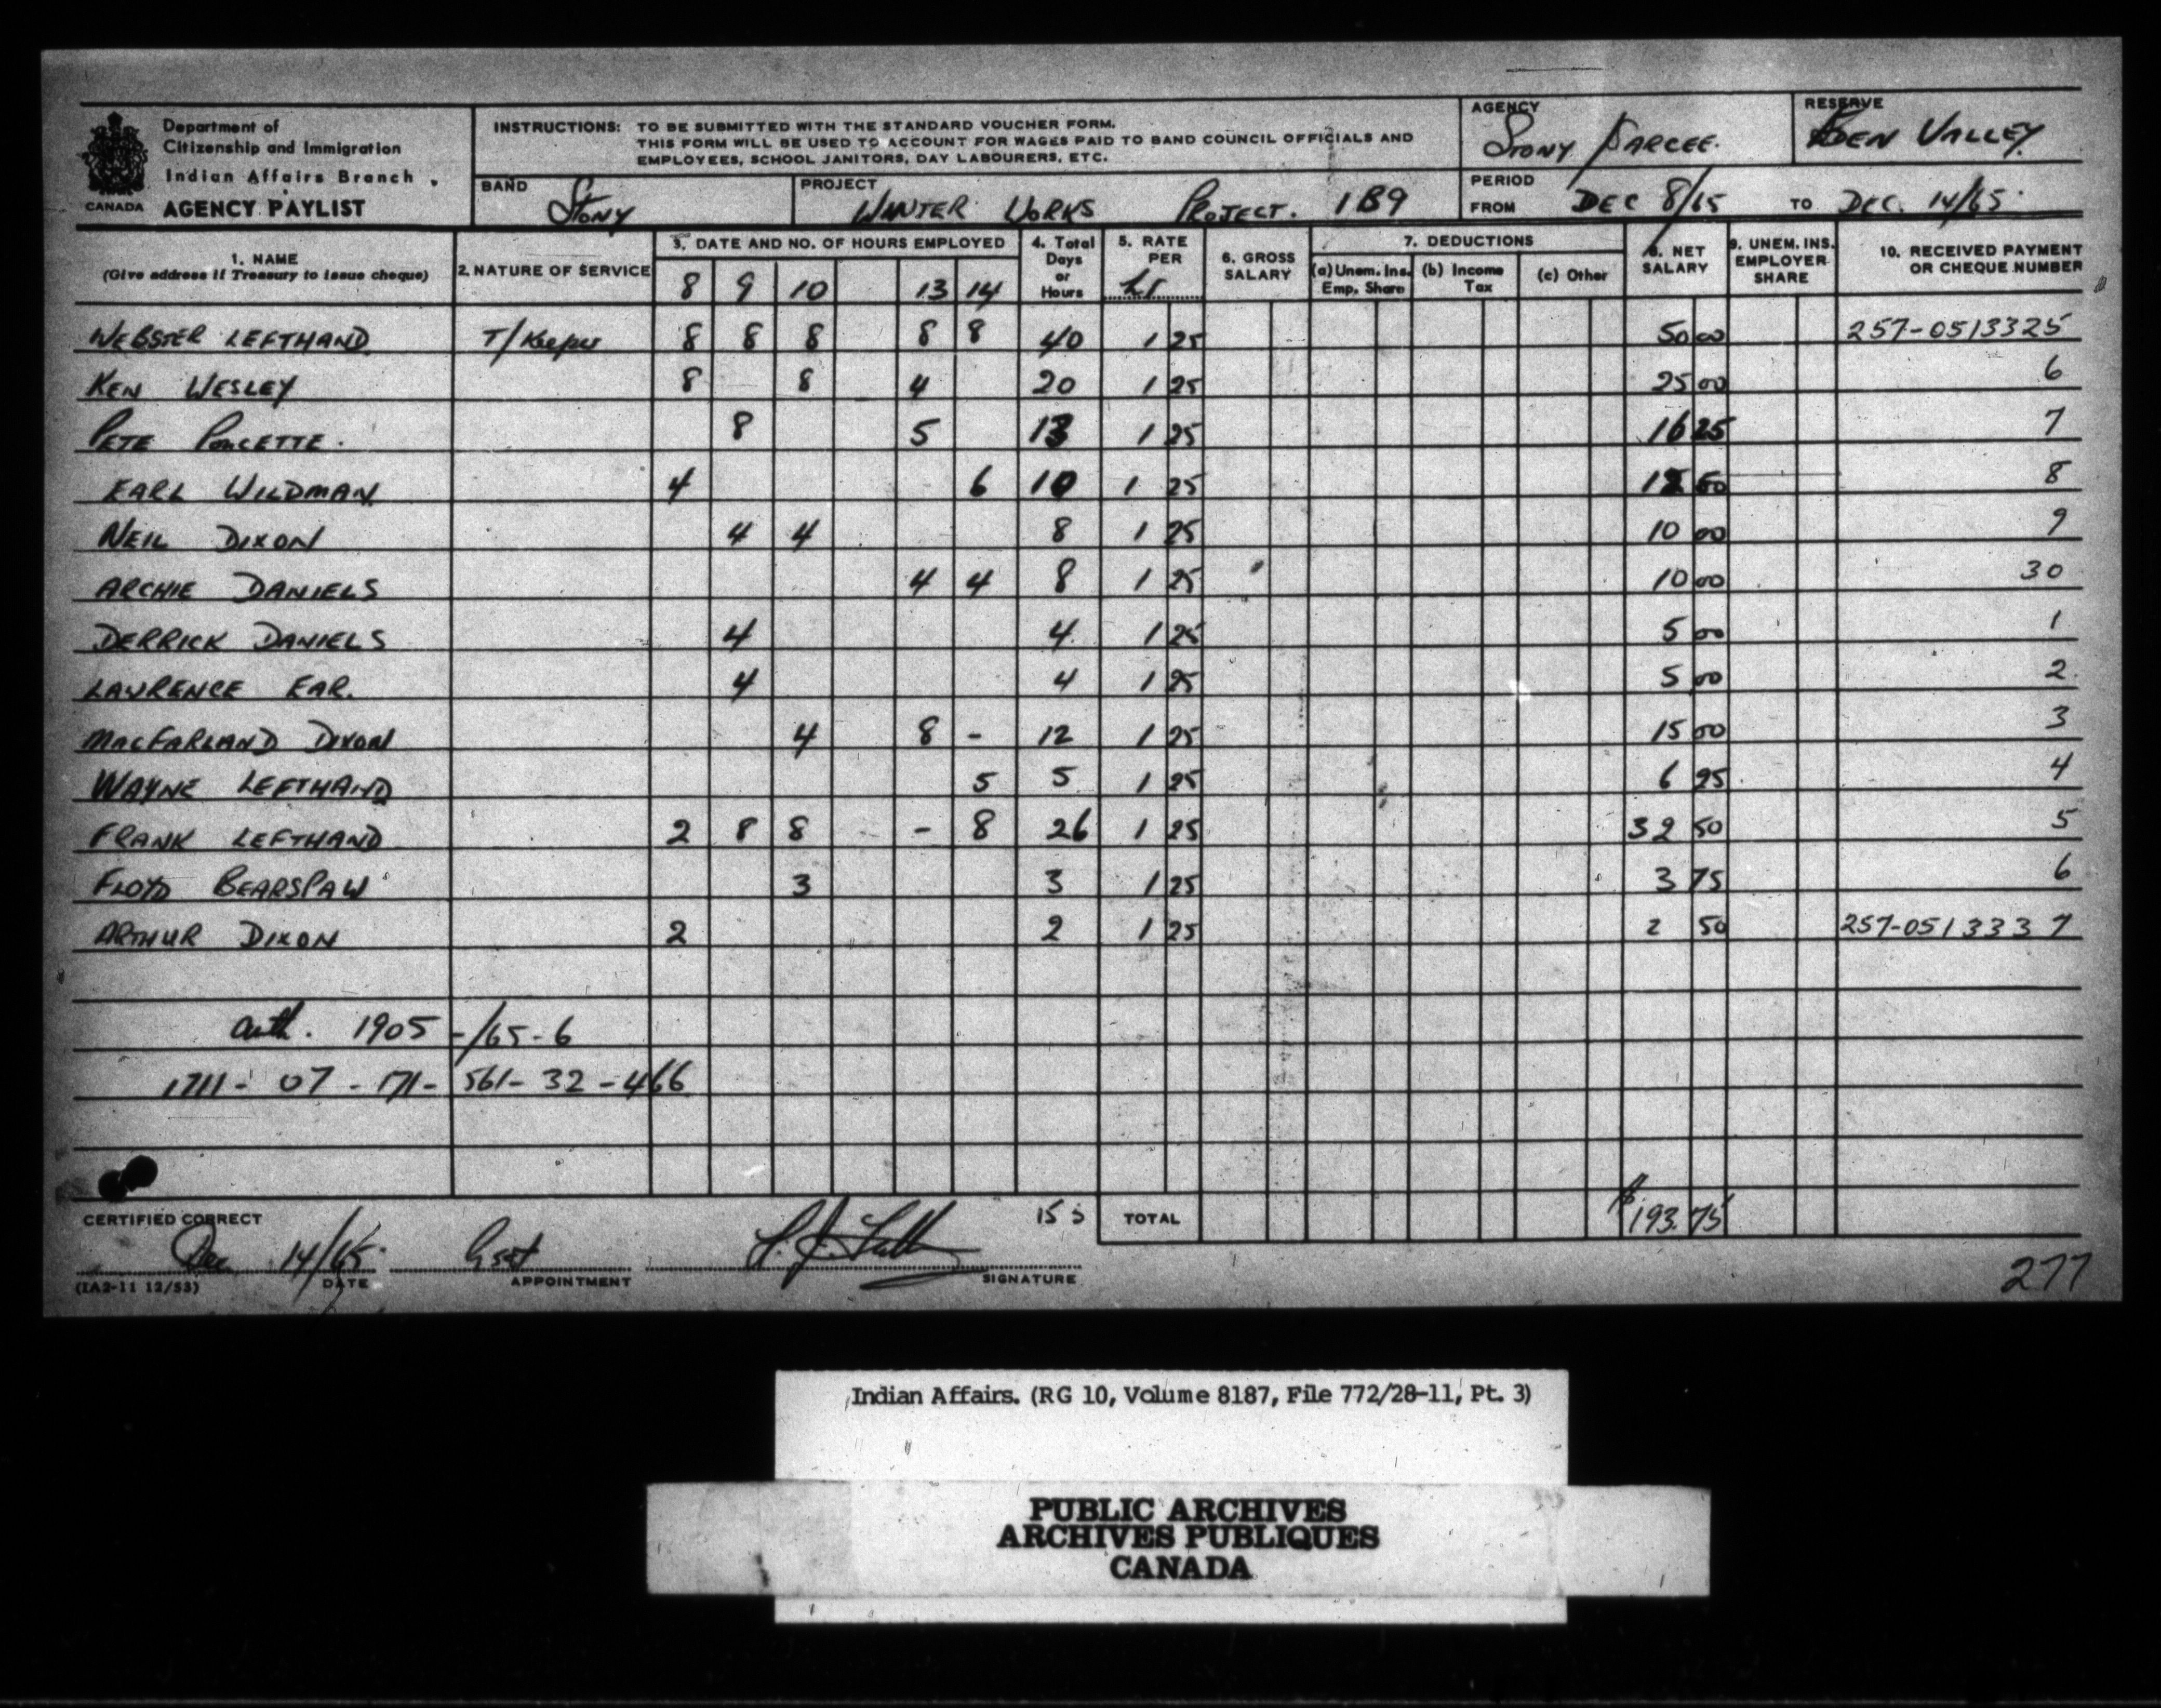 Department of
Citizenship and Immigration
Indian Affairs Branch
CANADA AGENCY PAYLIST
INSTRUCTIONS: TO BE SUBMITTED WITH THE STANDARD VOUCHER FORM.
THIS FORM WILL BE USED TO ACCOUNT FOR WAGES PAID TO BAND COUNCIL OFFICIALS AND
EMPLOYEES, SCHOOL JANITORS, DAY LABOURERS, ETC.
AGENCY
STONY / SARCEE.
RESERVE
EDEN VALLEY
BAND STONY
PROJECT WINTER WORKS PROJECT. 1B9
PERIOD
FROM DEC 8/65 TO DEC. 14/65
1. NAME
(Give address if Treasury to issue cheque)
2. NATURE OF SERVICE
3. DATE AND NO. OF HOURS EMPLOYED
8 9 10 13 14
4. Total
Days
or
Hours
5. RATE
PER
hr
6. GROSS
SALARY
7. DEDUCTIONS
(a) Unem. Ins.
Emp. Share
(b) Income
Tax
(c) Other
8. NET
SALARY
9. UNEM. INS.
EMPLOYER
SHARE
10. RECEIVED PAYMENT
OR CHEQUE NUMBER
WEBSTER LEFTHAND T/Keeper 8 8 8 8 8 40 1 25 50 00 257-0513325
KEN WESLEY 8 8 4 20 1 25 25 00 6
PETE POUCETTE. 8 5 13 1 25 16 25 7
EARL WILDMAN 4 6 10 1 25 12 50 8
NEIL DIXON 4 4 8 1 25 10 00 9
ARCHIE DANIELS 4 4 8 1 25 10 00 30
DERRICK DANIELS 4 4 1 25 5 00 1
LAWRENCE EAR. 4 4 1 25 5 00 2
MACFARLAND DIXON 4 8 - 12 1 25 15 00 3
WAYNE LEFTHAND 5 5 1 25 6 25 4
FRANK LEFTHAND 2 8 8 - 8 26 1 25 32 50 5
FLOYD BEARSPAW 3 3 1 25 3 75 6
ARTHUR DIXON 2 2 1 25 2 50 257-0513337
auth. 1905-/65-6
1711-07-171-561-32-466
CERTIFIED CORRECT
155 TOTAL $193.75
Dec 14/65 Asst
DATE APPOINTMENT SIGNATURE
(IA2-11 12/53)
277
Indian Affairs. (RG 10, Volume 8187, File 772/28-11, Pt. 3)
PUBLIC ARCHIVES
ARCHIVES PUBLIQUES
CANADA